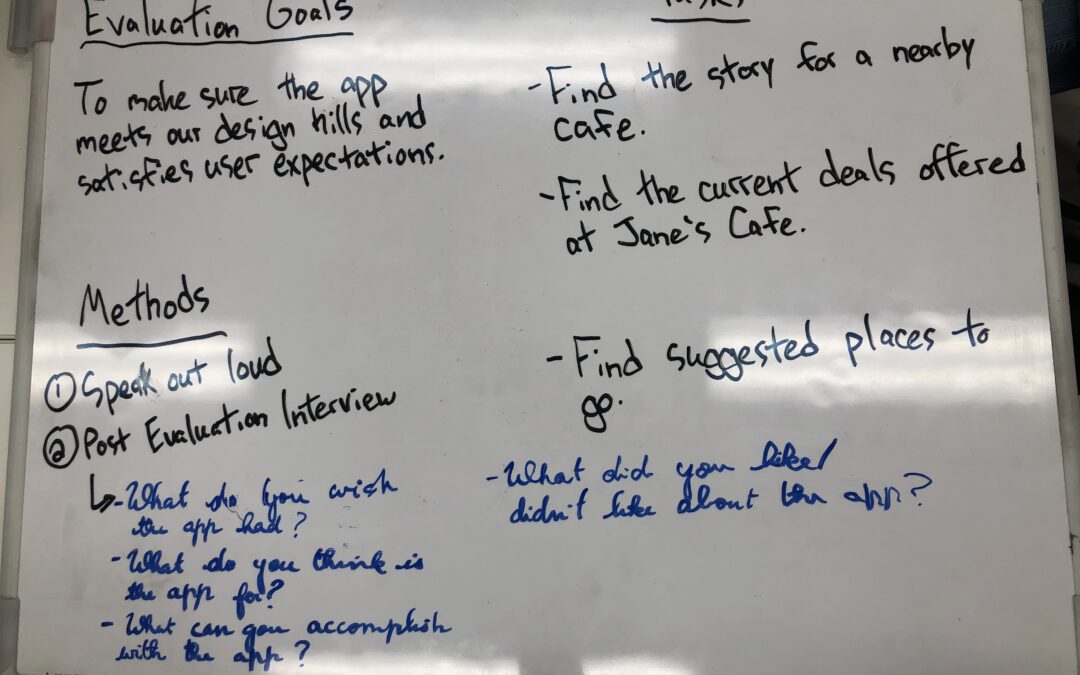 Evaluation Goals
To make sure the app
meets our design hills and
satisfies user expectations.
Methods
① Speak out loud
② Post Evaluation Interview
↳ - What do you wish
the app had?
- What do you think is
the app for?
- What can you accomplish
with the app?
Tasks
- Find the story for a nearby
cafe.
- Find the current deals offered
at Jane's Cafe.
- Find suggested places to
go.
- What did you like/
didn't like about the app?